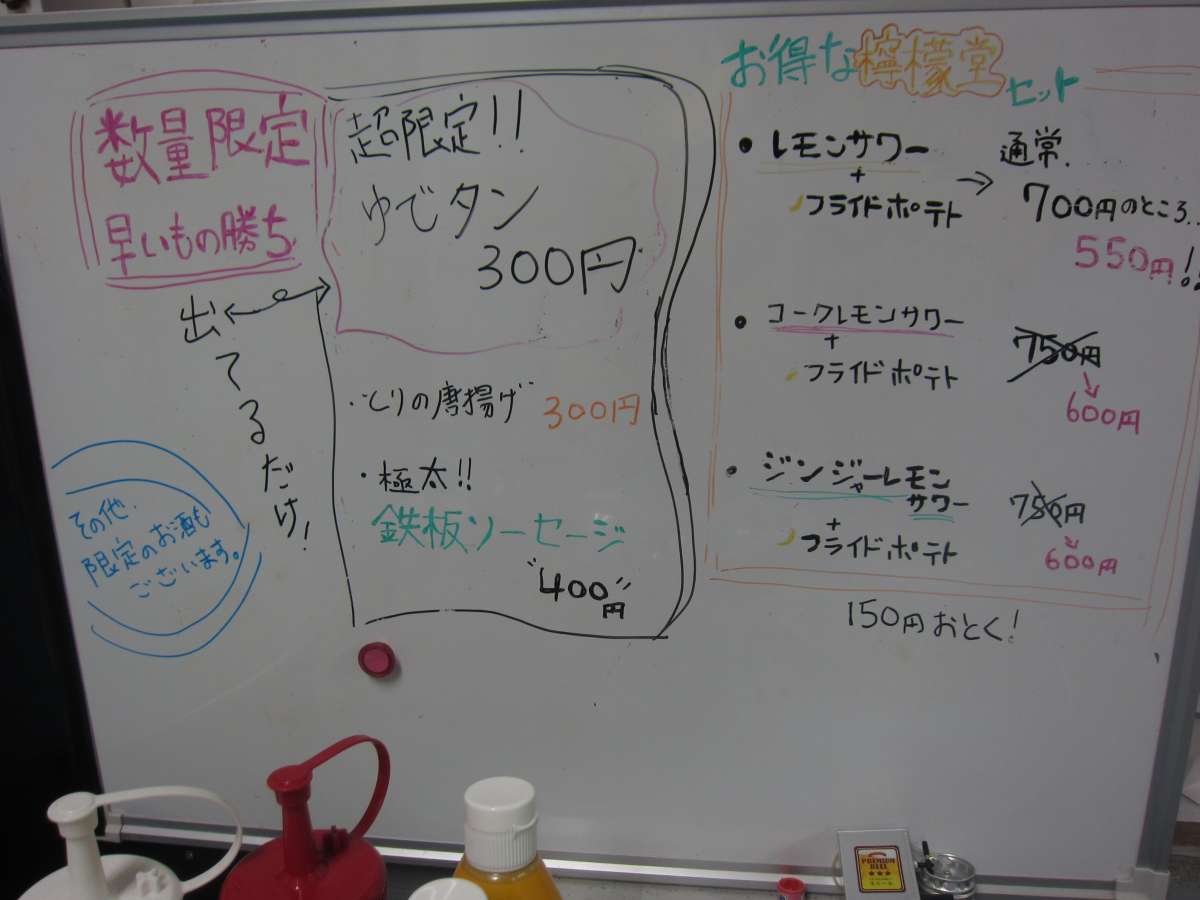 数量限定
早いもの勝ち
出てるだけ!
その他、
限定のお酒も
ございます。
超限定!!
ゆでタン
300円
・とりの唐揚げ 300円
・極太!!
鉄板ソーセージ
"400"円
お得な檸檬堂セット
・レモンサワー
+
フライドポテト
→ 通常、
700円のところ..
550円!!
・コークレモンサワー
+
フライドポテト
750円
600円
・ジンジャーレモン
サワー
+
フライドポテト
750円
600円
150円おとく!
PREMIUM
BEEF